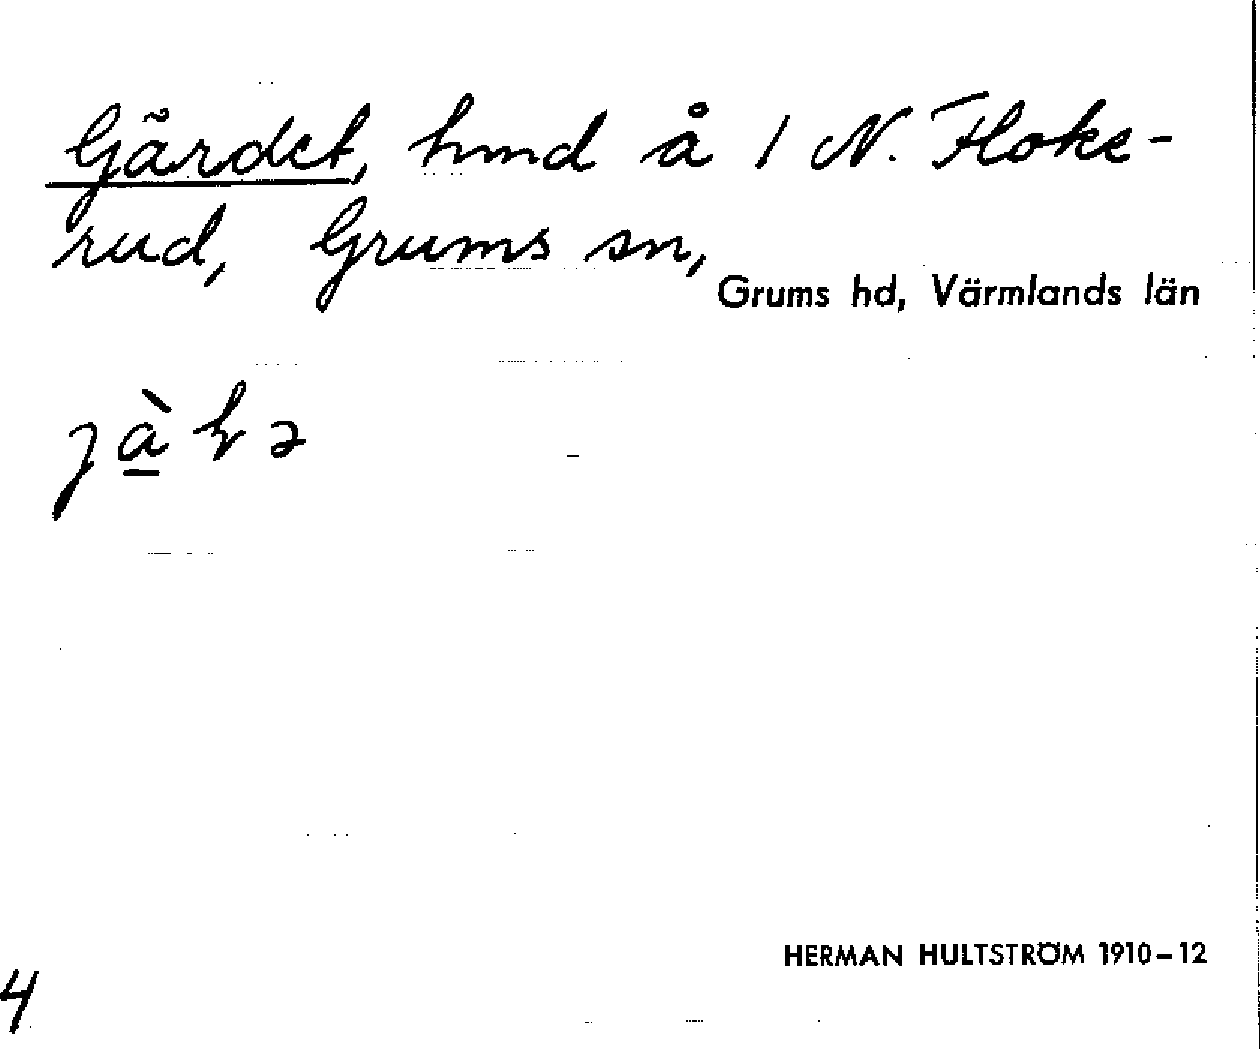 Gärdet, hmd å 1 N. Floke-
rud, Grums sn,
Grums hd, Värmlands län
HERMAN HULTSTRÖM 1910-12
4